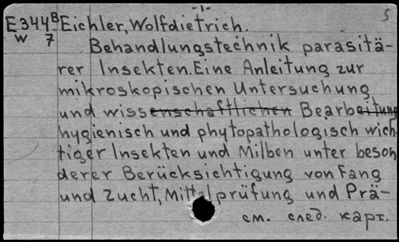 -1-
5
E344B Eichler, Wolfdietrich.
W 7
Behandlungstechnik parasitä-
rer Insekten. Eine Anleitung zur
mikroskopischen Untersuchung
und wissenschaftlichen Bearbeitung
hygienisch und phytopathologisch wich-
tiger Insekten und Milben unter beson
derer Berücksichtigung von Fang
und Zucht, Mittelprüfung und Prä-
см. след. карт.